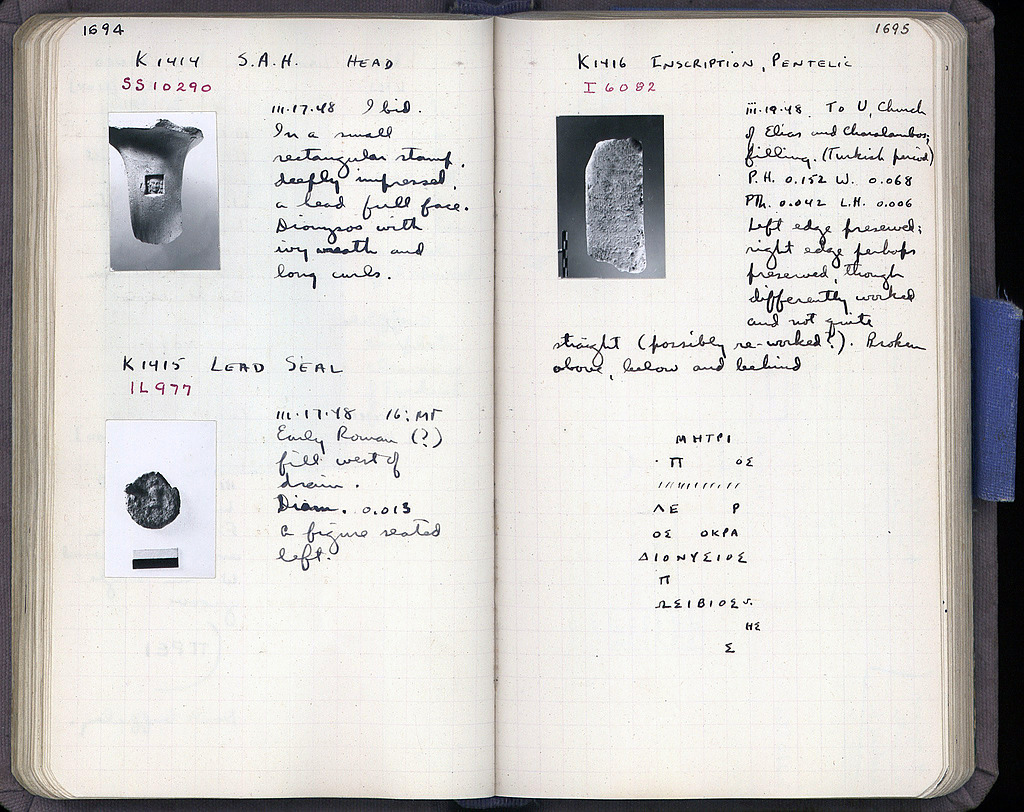 1694
K 1414 S.A.H. HEAD
SS 10290
III·17·48 Ibid.
In a small
rectangular stamp,
deeply impressed,
a head full face.
Dionysos with
ivy wreath and
long curls.
K 1415 LEAD SEAL
IL 977
III·17·48 16:ΜΓ
Early Roman (?)
fill west of
drain.
Diam. 0.013
a figure seated
left.
1695
K 1416 INSCRIPTION, PENTELIC
I 6082
III·19·48 To U, Church
of Elias and Charalambos,
filling. (Turkish period)
P.H. 0.152 W. 0.068
PTh. 0.042 L.H. 0.006
Left edge preserved;
right edge perhaps
preserved, though
differently worked
and not quite
straight (possibly re-worked?). Broken
above, below and behind
ΜΗΤΡΙ
· Π ΟΣ
ΛΕ Ρ
ΟΣ ΟΚΡΑ
ΔΙΟΝΥΣΙΟΣ
Π
ΩΣΙΒΙΟΣ
ΗΣ
Σ